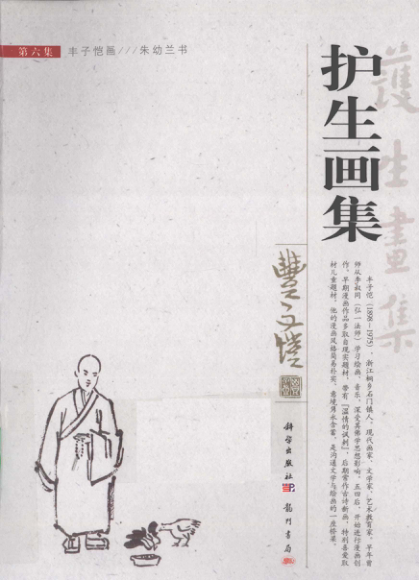 第六集
丰子恺画///朱幼兰书
护生画集
護生畫集
丰子恺（1898—1975），浙江桐乡石门镇人，现代画家，文学家，艺术教育家，早年曾
师从李叔同（弘一法师）学习绘画、音乐，深受其佛学思想影响。五四后，开始进行漫画创
作。早期漫画作品多取自现实题材，带有“温情的讽刺”，后期常作古诗新画，特别喜爱取
材儿童题材。他的漫画风格简易朴实，意境隽永含蓄，是沟通文学与绘画的一座桥梁。
豐子愷
科学出版社
龙门书局